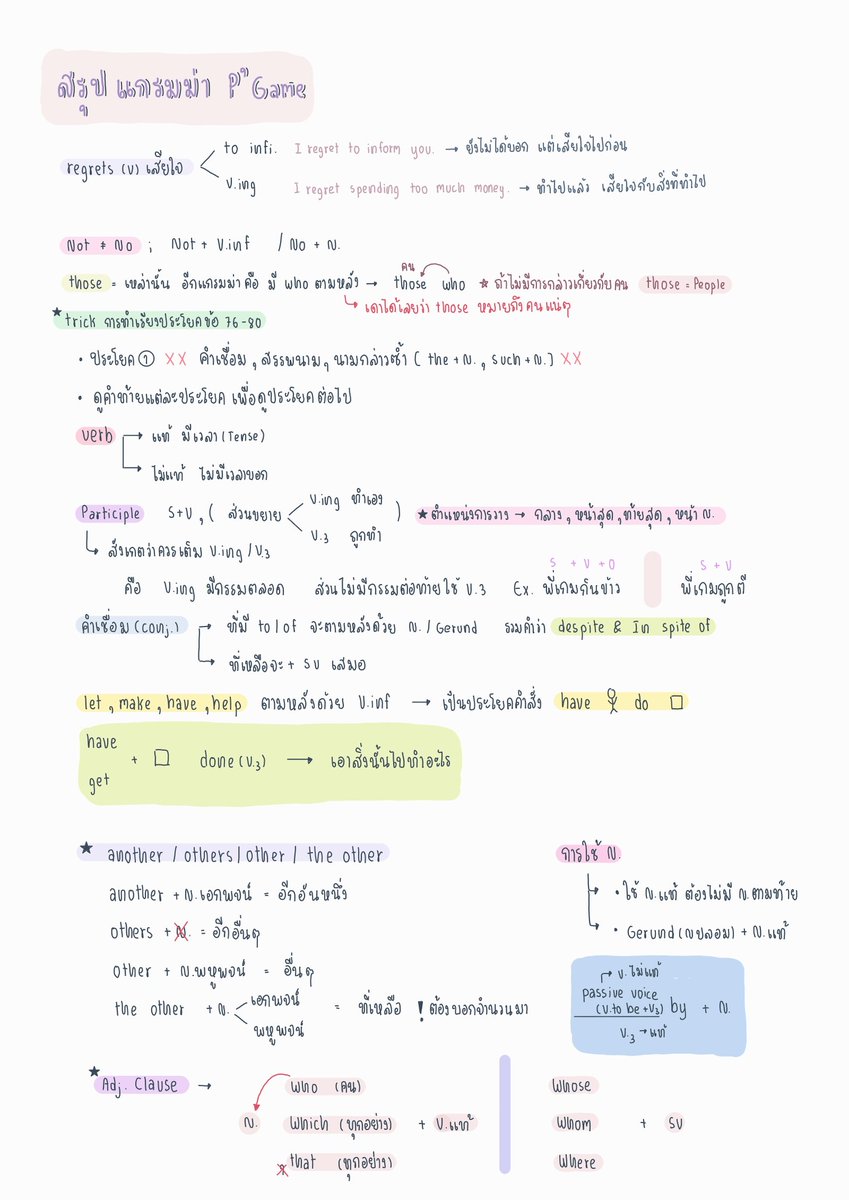 สรุป แกรมม่า P'Game
to infi. I regret to inform you. → ยังไม่ได้บอก แต่เสียใจไปก่อน
regrets (v) เสียใจ
V.ing I regret spending too much money. → ทำไปแล้ว เสียใจกับสิ่งที่ทำไป
Not ≠ No ; Not + V.inf / No + N.
คน
those = เหล่านั้น อีกแกรมม่า คือ มี who ตามหลัง → those who ★ ถ้าไม่มีการกล่าวเกี่ยวกับคน those = People
↳ เดาได้เลยว่า those หมายถึงคนแน่ๆ
★ trick การทำเรียงประโยคข้อ 76-80
• ประโยค ① XX คำเชื่อม, สรรพนาม, นามกล่าวซ้ำ ( the + N. , such + N.) XX
• ดูคำท้ายแต่ละประโยค เพื่อดูประโยคต่อไป
verb → แท้ มีเวลา (Tense)
→ ไม่แท้ ไม่มีเวลาบอก
V.ing ทำเอง
Participle S+V , ( ส่วนขยาย ) ★ ตำแหน่งการวาง → กลาง, หน้าสุด, ท้ายสุด, หน้า N.
V.3 ถูกทำ
↳ สังเกตว่าควรเติม V.ing / V.3
S + V + O S + V
คือ V.ing มีกรรมตลอด ส่วนไม่มีกรรมต่อท้ายใช้ V.3 Ex. พี่เกมกินข้าว พี่เกมถูกตี
คำเชื่อม (conj.) → ที่มี to / of จะตามหลังด้วย N. / Gerund รวมคำว่า despite & In spite of
→ ที่เหลือจะ + SV เสมอ
let , make , have , help ตามหลังด้วย V.inf → เป็นประโยคคำสั่ง have do □
have
+ □ done (V.3) → เอาสิ่งนั้นไปทำอะไร
get
★ another / others / other / the other
another + N.เอกพจน์ = อีกอันหนึ่ง
others + N. = อีกอื่นๆ
other + N.พหูพจน์ = อื่นๆ
เอกพจน์
the other + N. = ที่เหลือ ! ต้องบอกจำนวนมา
พหูพจน์
การใช้ N.
• ใช้ N.แท้ ต้องไม่มี N.ตามท้าย
• Gerund (N.ปลอม) + N.แท้
→ V.ไม่แท้
passive voice
(V.to be + V3) by + N.
V.3 → แท้
★ Adj. Clause → who (คน)
N. Which (ทุกอย่าง) + V.แท้
that (ทุกอย่าง)
Whose
Whom + SV
Where